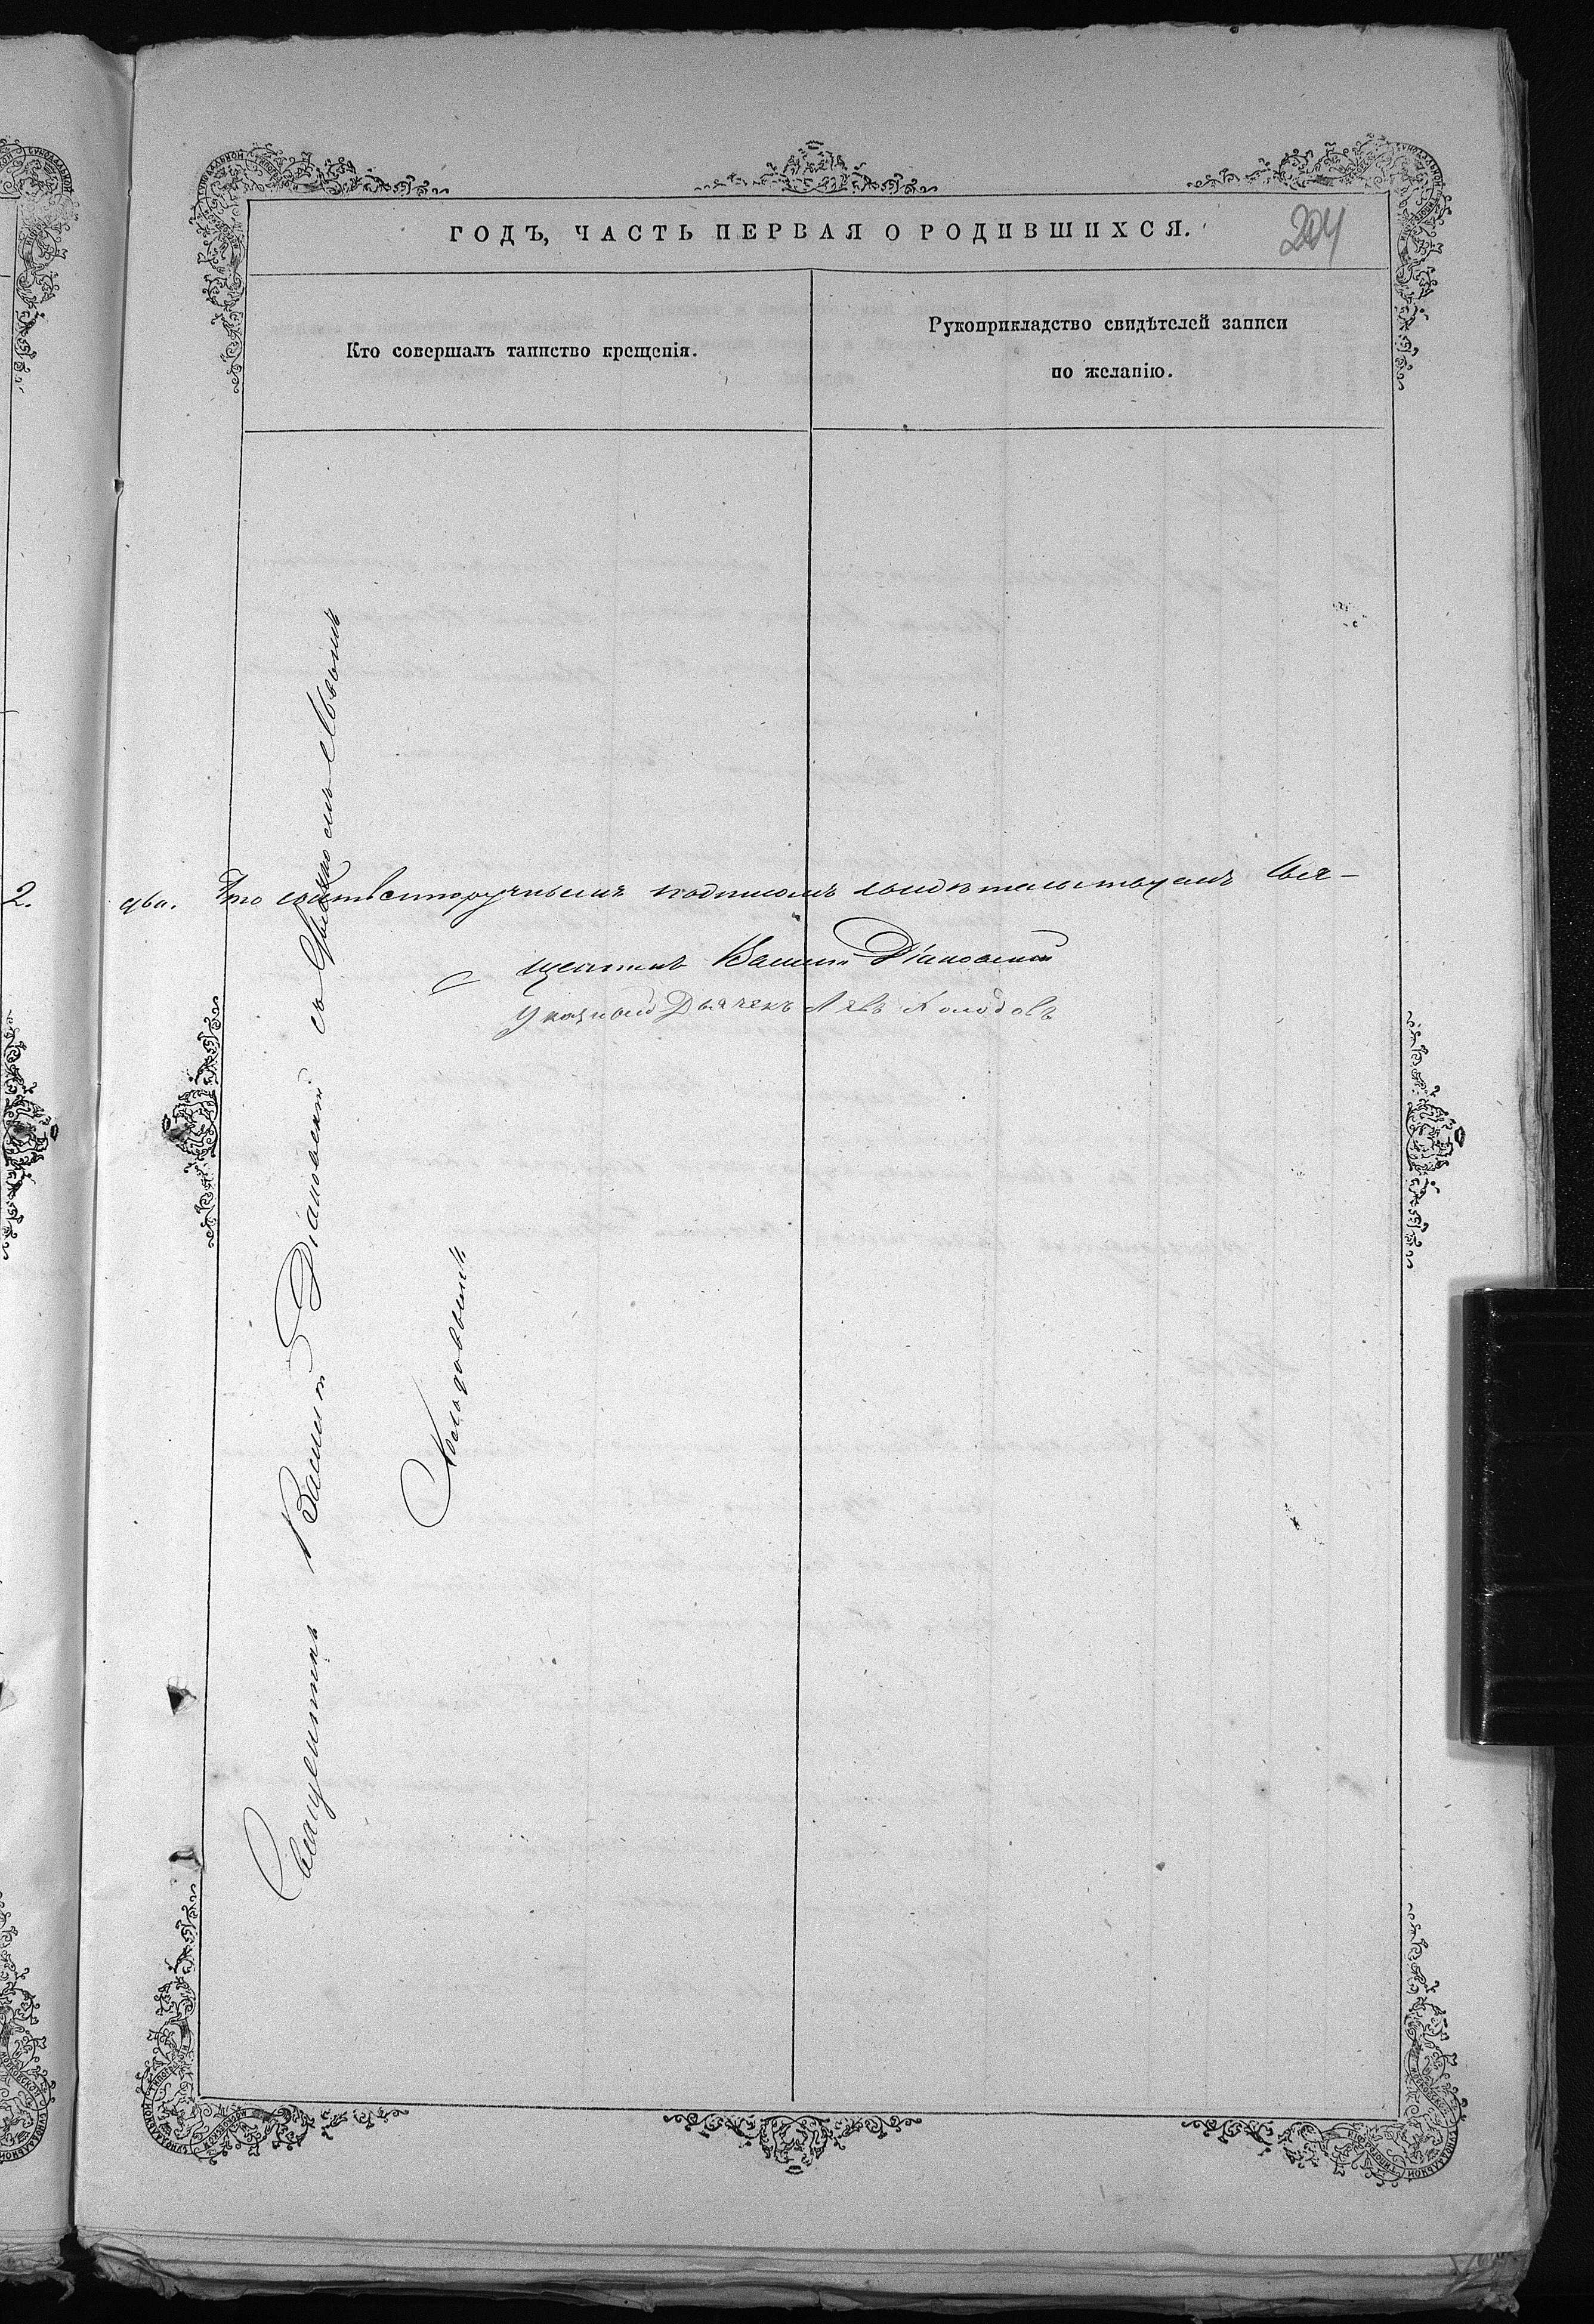 ГОДЪ, ЧАСТЬ ПЕРВАЯ О РОДИВШИХСЯ.
204
Кто совершалъ таинство крещенія.
Рукоприкладство свидѣтелей записи
по желанію.
Священникъ Василій Діаковскій съ Дьячкомъ Львомъ
Колодовымъ
2.
два. Что собственноручнымъ подписомъ свидѣтельствуемъ Свя-
щенникъ Василій Діаковскій
Указный Дьячекъ Левъ Колодовъ